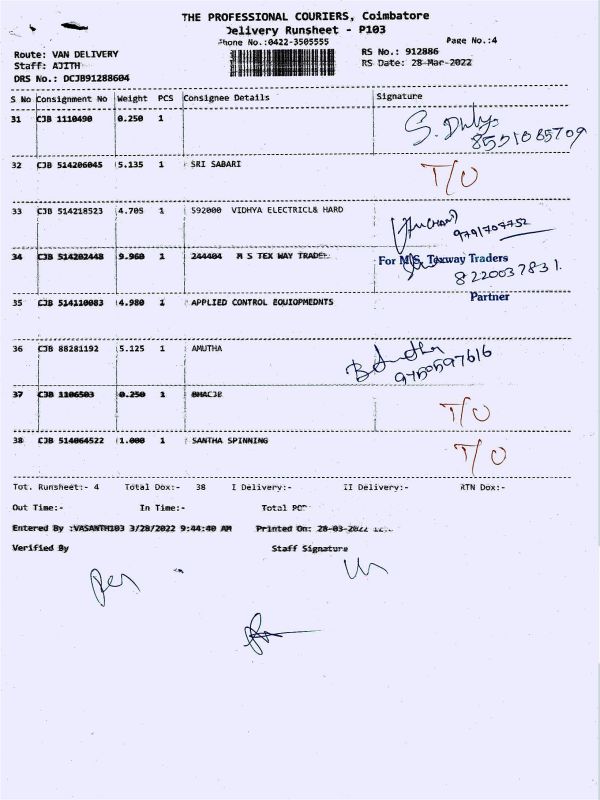 THE PROFESSIONAL COURIERS, Coimbatore
Delivery Runsheet - P103
Phone No.:0422-3505555
Page No.:4
Route: VAN DELIVERY
RS No.: 912886
Staff: AJITH
RS Date: 28-Mar-2022
DRS No.: DCJB91288604
S No Consignment No Weight PCS Consignee Details Signature
31 CJB 1110490 0.250 1
8531085709
32 CJB 514206045 5.135 1 SRI SABARI T/O
33 CJB 514218523 4.705 1 592000 VIDHYA ELECTRICL& HARD
9791704752
34 CJB 514202448 9.960 1 244404 M S TEX WAY TRADE
For M/S. Texway Traders
8220037831.
Partner
35 CJB 514110083 4.980 1 APPLIED CONTROL EQUIOPMEDNTS
36 CJB 88281192 5.125 1 AMUTHA
9750597616
37 CJB 1106503 0.250 1 BHACJB T/O
38 CJB 514064522 1.000 1 SANTHA SPINNING T/O
Tot. Runsheet:- 4 Total Dox:- 38 I Delivery:- II Delivery:- RTN Dox:-
Out Time:- In Time:- Total POD
Entered By :VASANTH103 3/28/2022 9:44:40 AM Printed On: 28-03-2022
Verified By Staff Signature